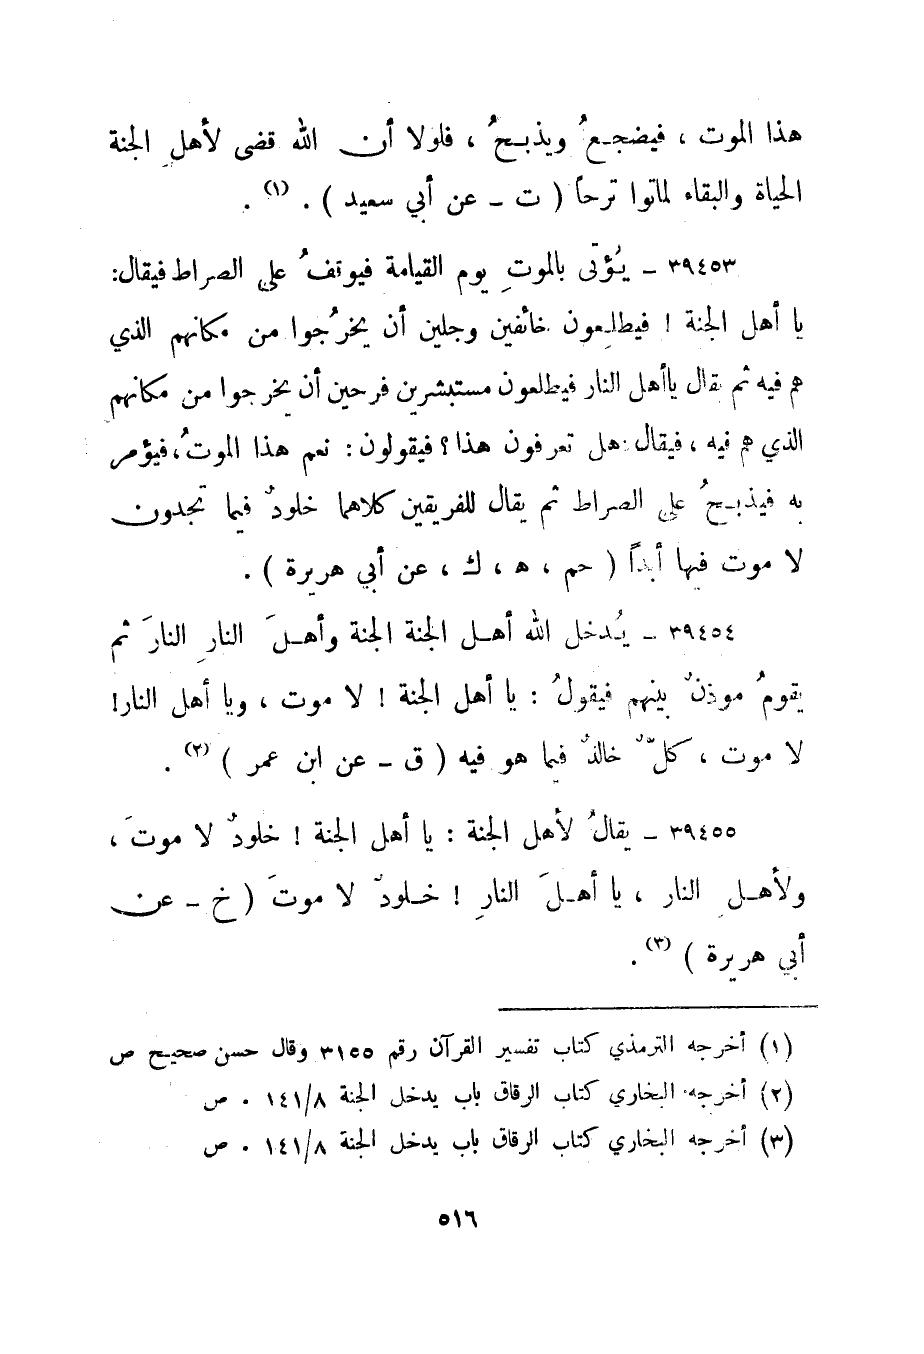 هذا الموت ، فيضجعُ ويذبحُ ، فلولا أن الله قضى لأهلِ الجنة
الحياة والبقاء لماتوا ترحاً ( ت ـ عن أبي سعيد ) . (١) .
٣٩٤٥٣ ـ يُؤتَى بالموتِ يوم القيامة فيوقفُ على الصراط فيقال:
يا أهل الجنة ! فيطلعون خائفين وجلين أن يخرُجوا من مكانهم الذي
هم فيه ثم يقال ياأهل النار فيطلعون مستبشرين فرحين أن يخرجوا من مكانهم
الذي هم فيه ، فيقال : هل تعرفون هذا ؟ فيقولون : نعم هذا الموتُ ، فيؤمر
به فيذبحُ على الصراط ثم يقال للفريقين كلاهما خلودٌ فيما تجدون
لا موت فيها أبداً ( حم ، ه ، ك ، عن أبي هريرة ) .
٣٩٤٥٤ ـ يُدخل الله أهل الجنة الجنة وأهلَ النارِ النارَ ثم
يقومُ موذنٌ بينهم فيقولُ : يا أهل الجنة ! لا موت ، ويا أهل النار!
لا موت ، كلٌّ خالدٌ فيما هو فيه ( ق ـ عن ابن عمر ) (٢) .
٣٩٤٥٥ ـ يقالُ لأهل الجنة : يا أهل الجنة ! خلودٌ لا موتَ ،
ولأهلِ النار ، يا أهلَ النارِ ! خلودٌ لا موتَ ( خ ـ عن
أبي هريرة ) (٣) .
(١) أخرجه الترمذي كتاب تفسير القرآن رقم ٣١٥٥ وقال حسن صحيح ص
(٢) أخرجه البخاري كتاب الرقاق باب يدخل الجنة ١٤١/٨ . ص
(٣) أخرجه البخاري كتاب الرقاق باب يدخل الجنة ١٤١/٨ . ص
٥١٦